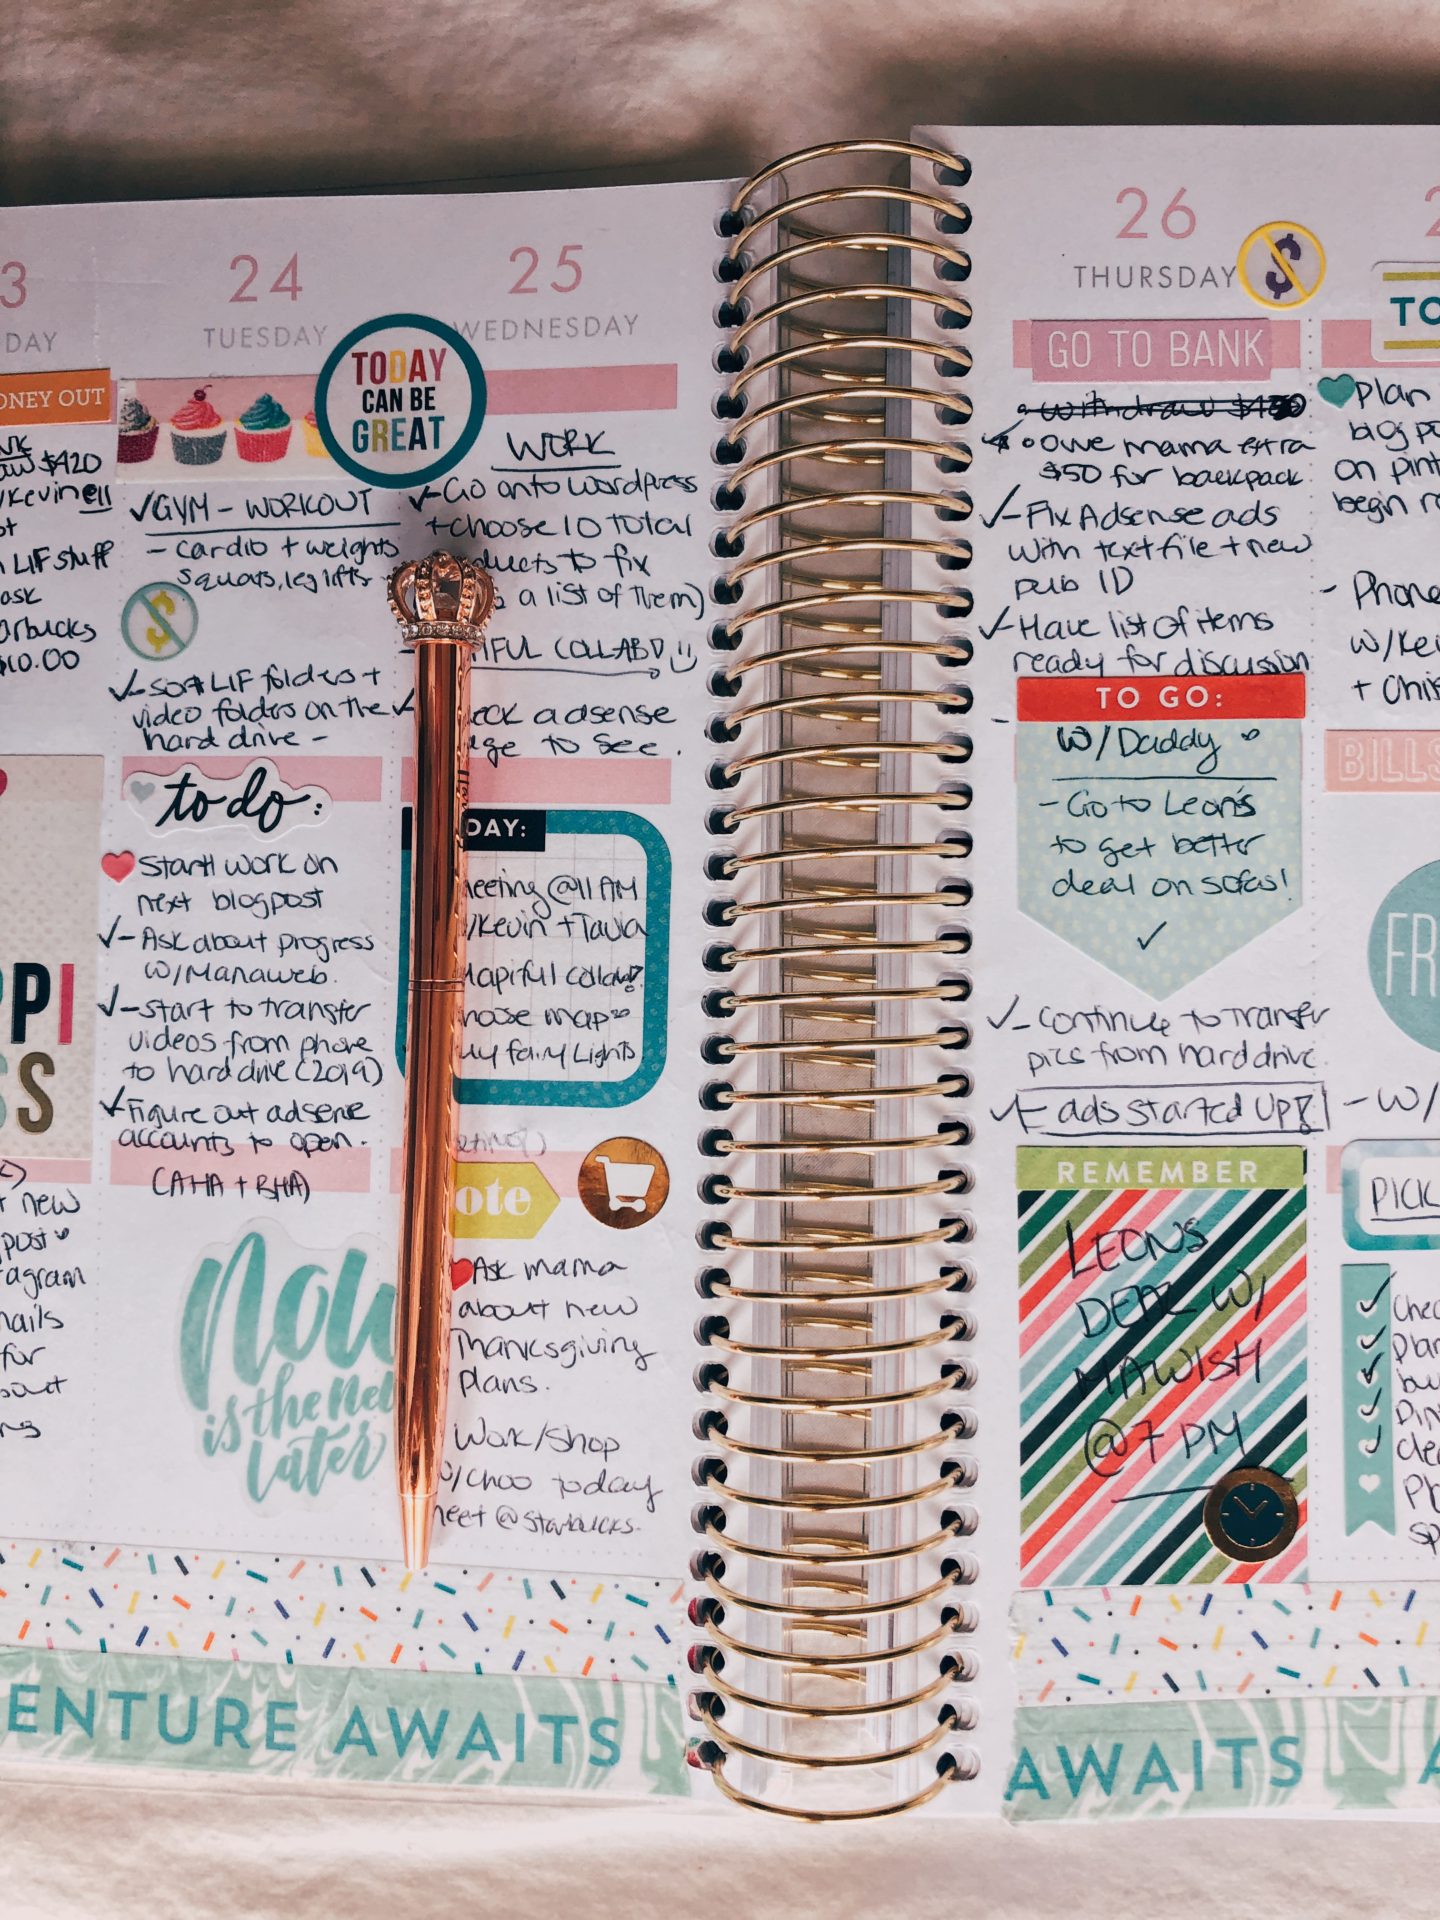 3
DAY
ONEY OUT
$420
/Kevinell
LIF stuff
ask
arbucks
$10.00
PPI
SS
new
post
agram
nails
for
bout
24
TUESDAY
✓GYM - WORKOUT
- cardio + weights
squats, leg lifts
$
✓- sort LIF folders +
video folders on the
hard drive -
to do:
Start work on
next blogpost
✓- Ask about progress
w/Manaweb.
✓- Start to transfer
videos from phone
to hard drive (2019)
✓- Figure out adsense
accounts to open.
(AHA + BHA)
Now
is the new
later
TODAY
CAN BE
GREAT
25
WEDNESDAY
WORK
✓- Go onto Wordpress
+ choose 10 total
ducts to fix
a list of them)
IFUL COLLAB
eck adsense
ge to see.
DAY:
eeting @11 AM
/Kevin + Tavia
Mapiful collab!
hoose map
fairy lights
ote
Ask mama
about new
Thanksgiving
plans.
Work/Shop
/Choo today
eet @ Starbucks.
ENTURE AWAITS
26
THURSDAY
$
GO TO BANK
withdraw
✓ Owe mama extra
$50 for backpack
✓- Fix Adsense ads
with text file + new
pub ID
✓- Have list of items
ready for discussion
TO GO:
w/Daddy
- Go to Leon's
to get better
deal on sofas!
✓
✓- Continue to transfer
pics from hard drive.
✓- ads started up!
REMEMBER
LEONS
DEAL W/
MAWISH
@ 7 PM
AWAITS
2
TO
Plan
blog po
on pint
begin
- Phone
w/Kev
+ Chis
BILLS
FR
- w/
PICK
Chec
plan
bu
pin
clea
Pl
sp
A